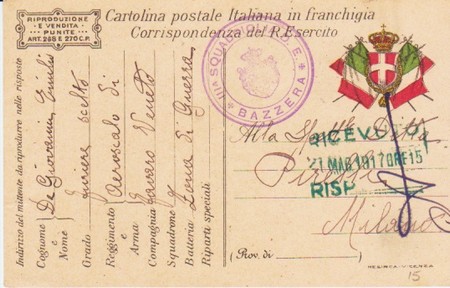 RIPRODUZIONE
E VENDITA
PUNITE
ART. 268 E 270 C.P.
Cartolina postale Italiana in franchigia
Corrispondenza del R. Esercito
SQUAD
BAZZERA
Indirizzo del mittente da riprodurre nelle risposte
Cognome e Nome De Giovanni Emilio
Grado
Reggimento o Arma Aeroscalo di
Compagnia Favaro Veneto
Squadrone
Batteria Zona di Guerra
Riparti speciali
Alla Spett. Ditta
Pirelli
Milano
RICEVUTA
21 MAG 1917 ORE 15
RISP
(Prov. di
15